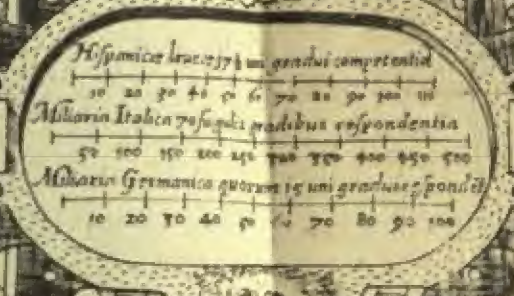 Hispanicæ uni gradui competentia
10 20 30 40 50 60 70 80 90 100 110
Miliaria Italica gradibus respondentia
50 100 150 200 250 300 350 400 450 500
Miliaria Germanica quorum 15 uni gradui respondet
10 20 30 40 50 60 70 80 90 100